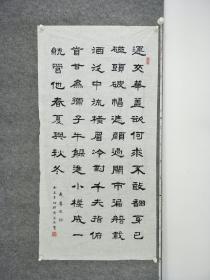 運交華蓋欲何求不敢翻身已
碰頭破帽遮顏過鬧市漏船載
酒泛中流橫眉冷對千夫指俯
首甘為孺子牛躲進小樓成一
統管他春夏與秋冬